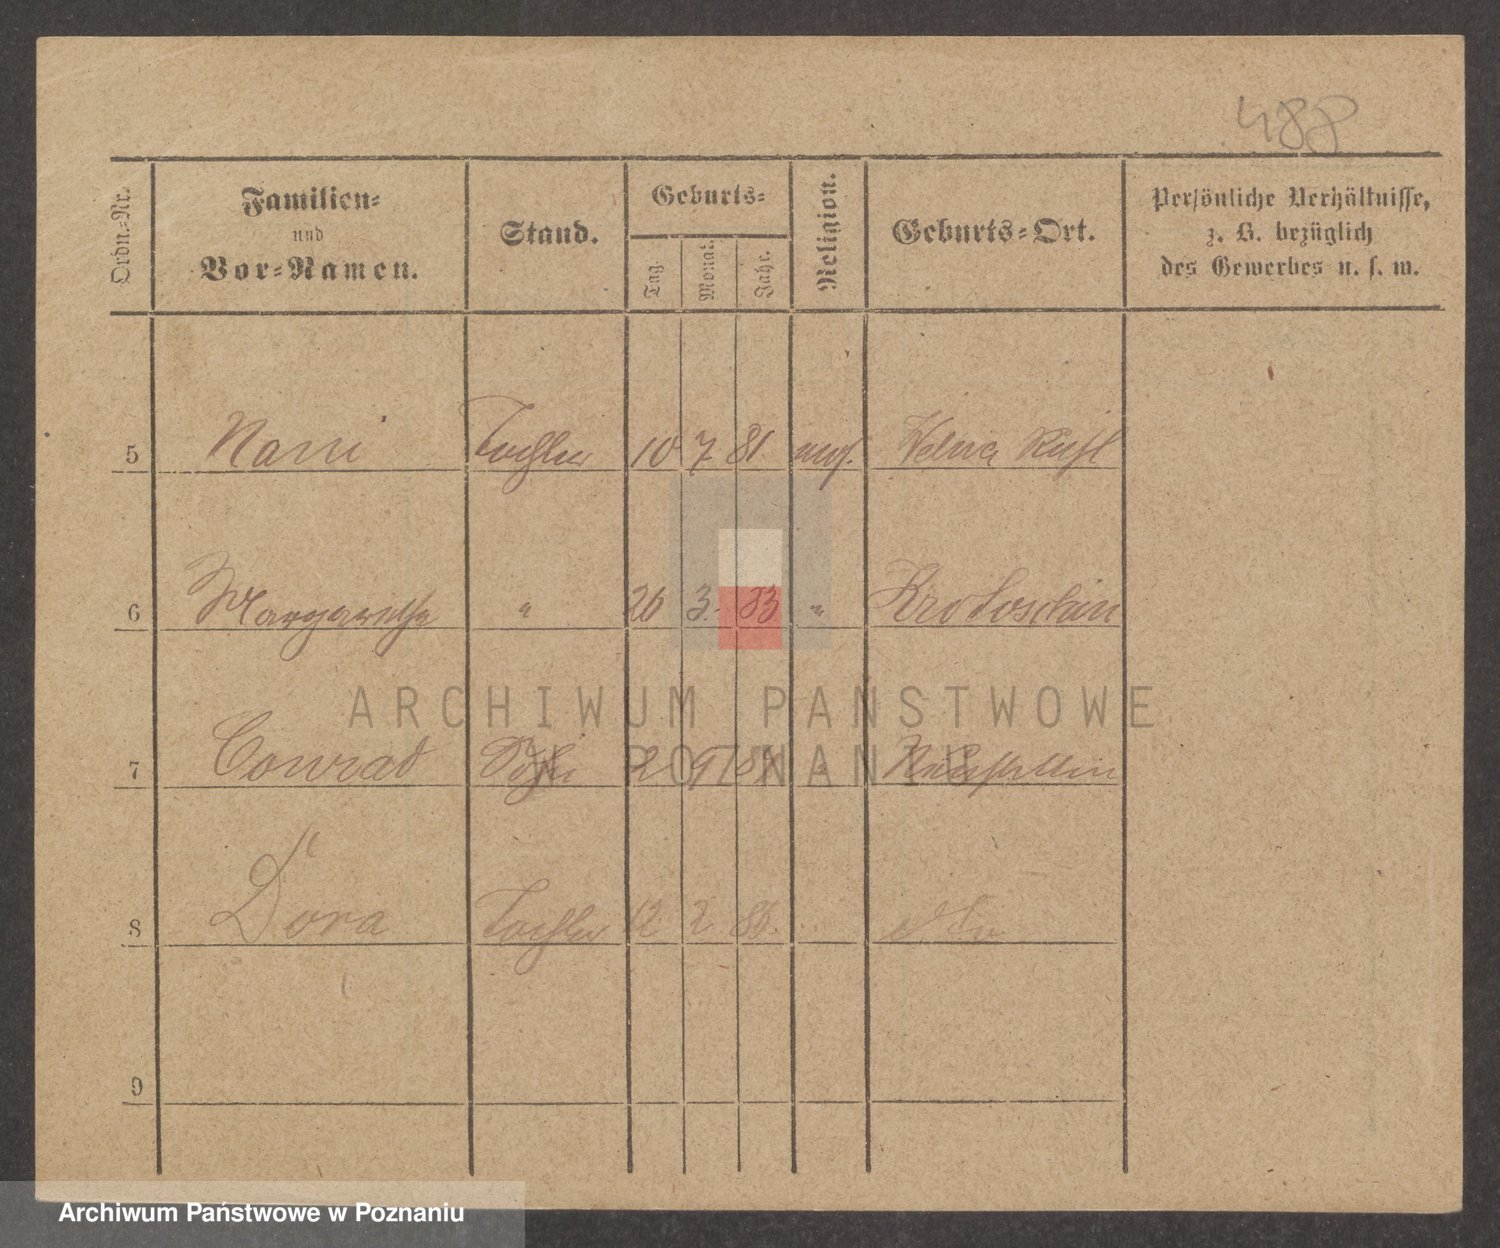 488
Ordn.-Nr.
Familien-
und
Vor-Namen.
Stand.
Geburts-
Tag.
Monat.
Jahr.
Religion.
Geburts-Ort.
Persönliche Verhältnisse,
z. B. bezüglich
des Gewerbes u. s. w.
5 Nani Tochter 10 7 81
6 Margarethe " 26 3. 83 " Krotoschin
7 Conrad Sohn 2 9
8 Dora Tochter 12 2
9
ARCHIWUM PAŃSTWOWE
W POZNANIU
Archiwum Państwowe w Poznaniu